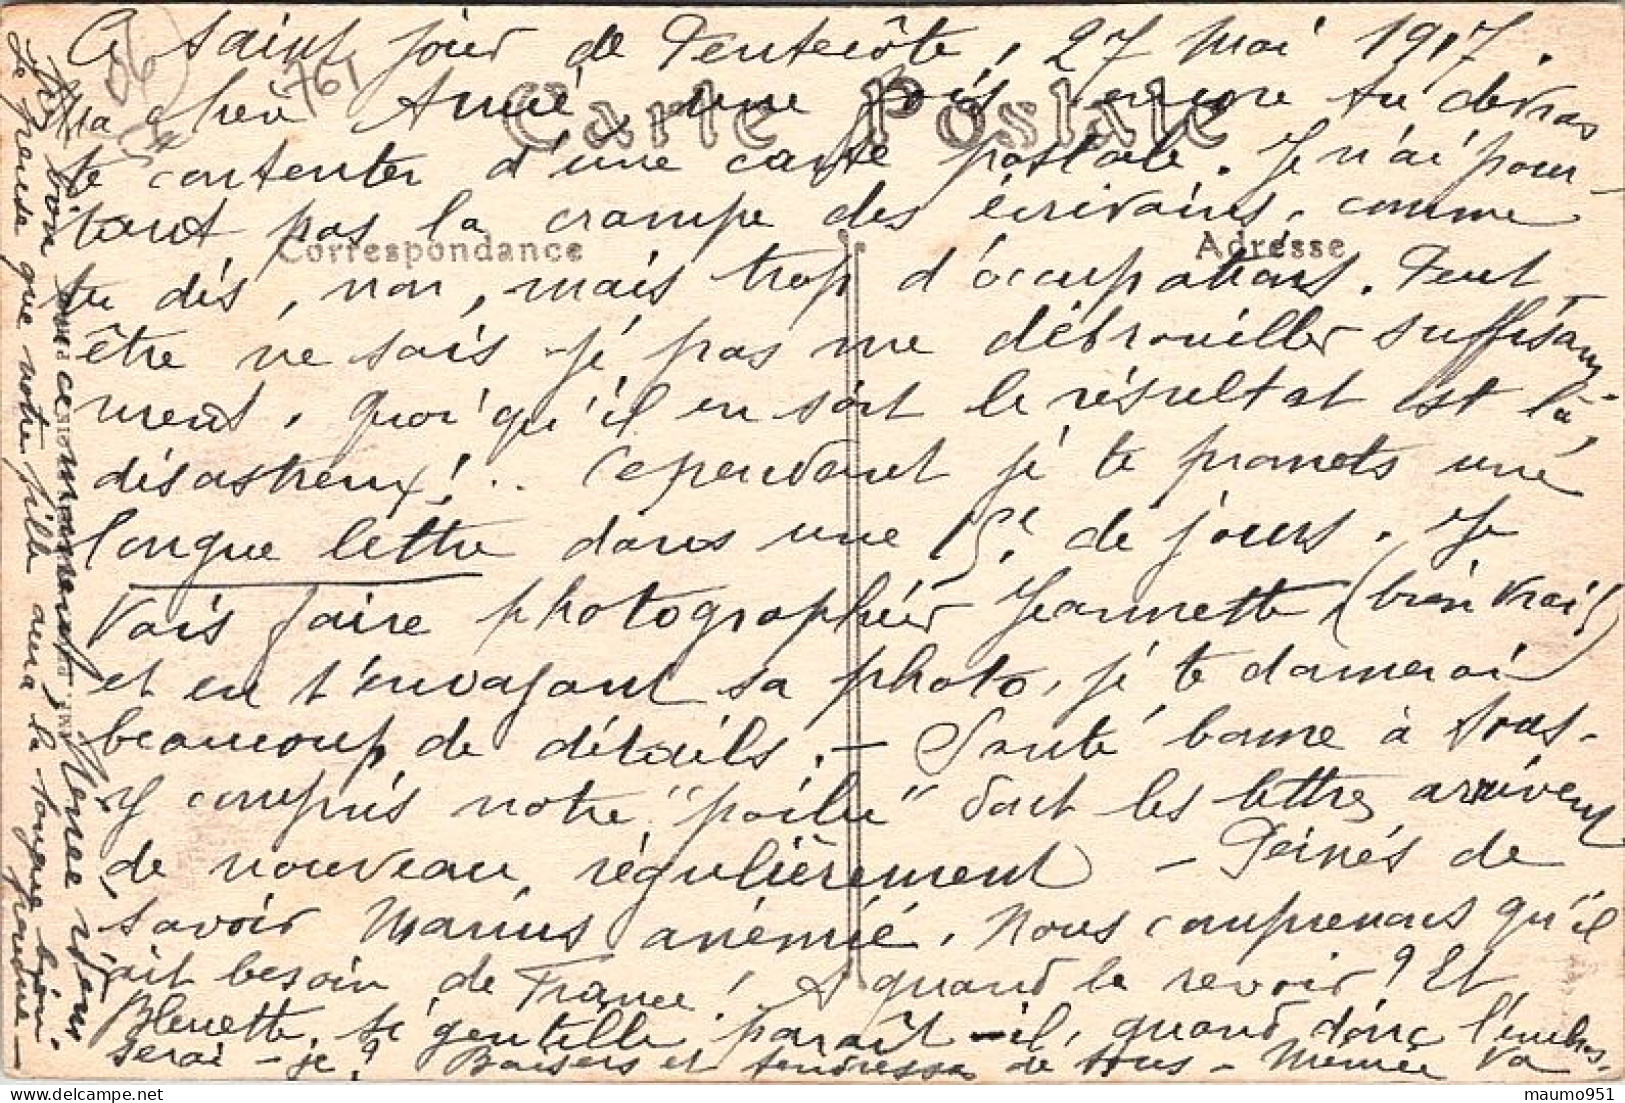 Ce saint jour de Pentecôte, 27 Mai 1917.
Ma chère Aimée, une fois encore tu devras
te contenter d'une carte postale. Je n'ai pour-
tant pas la crampe des écrivains, comme
tu dis, non, mais trop d'occupations. Peut
être ne sais-je pas me débrouiller suffisam-
ment, quoi qu'il en soit le résultat est là,
désastreux!.. Cependant je te promets une
longue lettre dans une 15e de jours. Je
vais faire photographier Jeannette (bien vrai!)
et en t'envoyant sa photo, je te donnerai
beaucoup de détails. - Santé bonne à tous -
y compris notre "poilu" dont les lettres arrivent
de nouveau régulièrement - Peinés de
savoir Marius anémié. Nous comprenons qu'il
ait besoin de France! A quand le revoir? Et
Bleuette, si gentille paraît-il, quand donc l'embras-
serai-je? Baisers et tendresses de tous - Mémée va
très bien en ce moment, Venez vous
Je pense que notre fille aura la langue bien
pendue -
Carte Postale
Correspondance
Adresse
761
06
maumo951